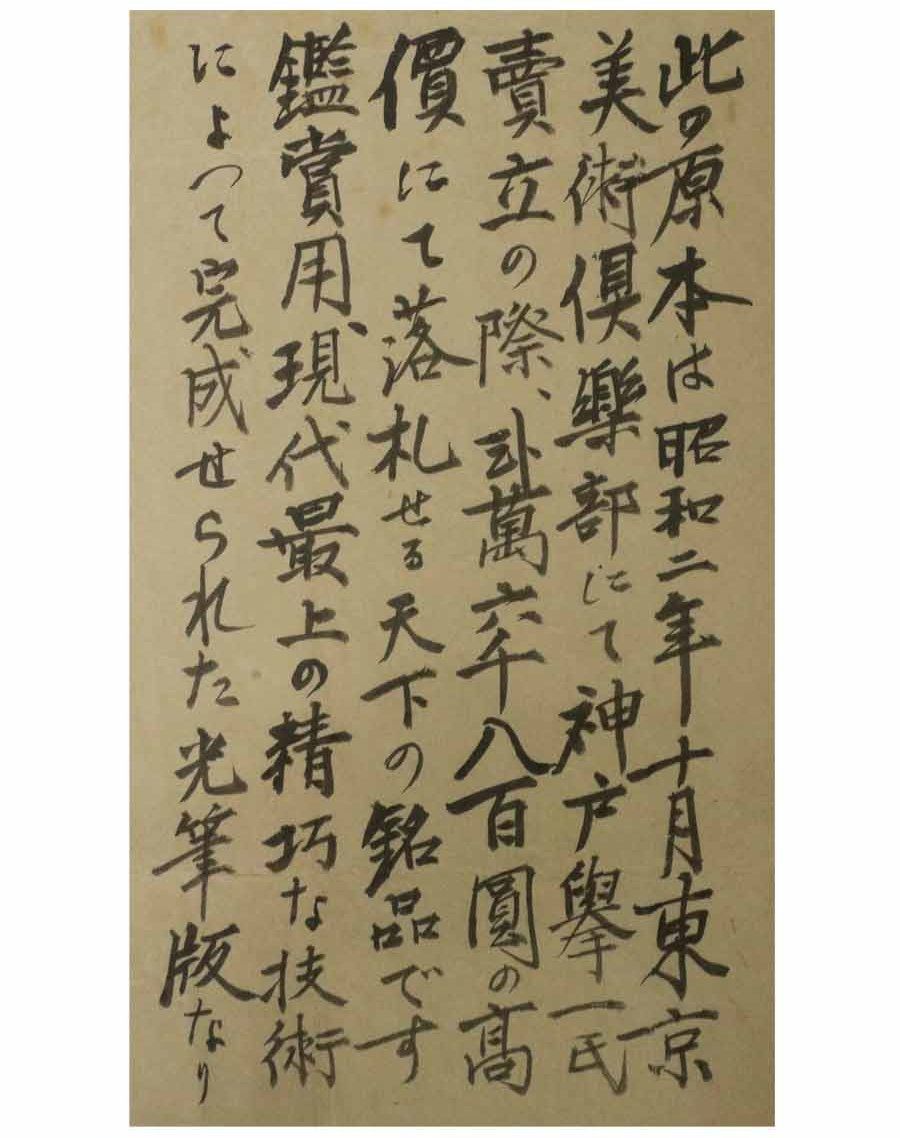 此の原本は昭和二年十月東京
美術倶樂部にて神戸擧一氏
賣立の際、卦萬六千八百圓の高
價にて落札せる天下の銘品です
鑑賞用、現代最上の精巧な技術
によって完成せられた光筆版なり